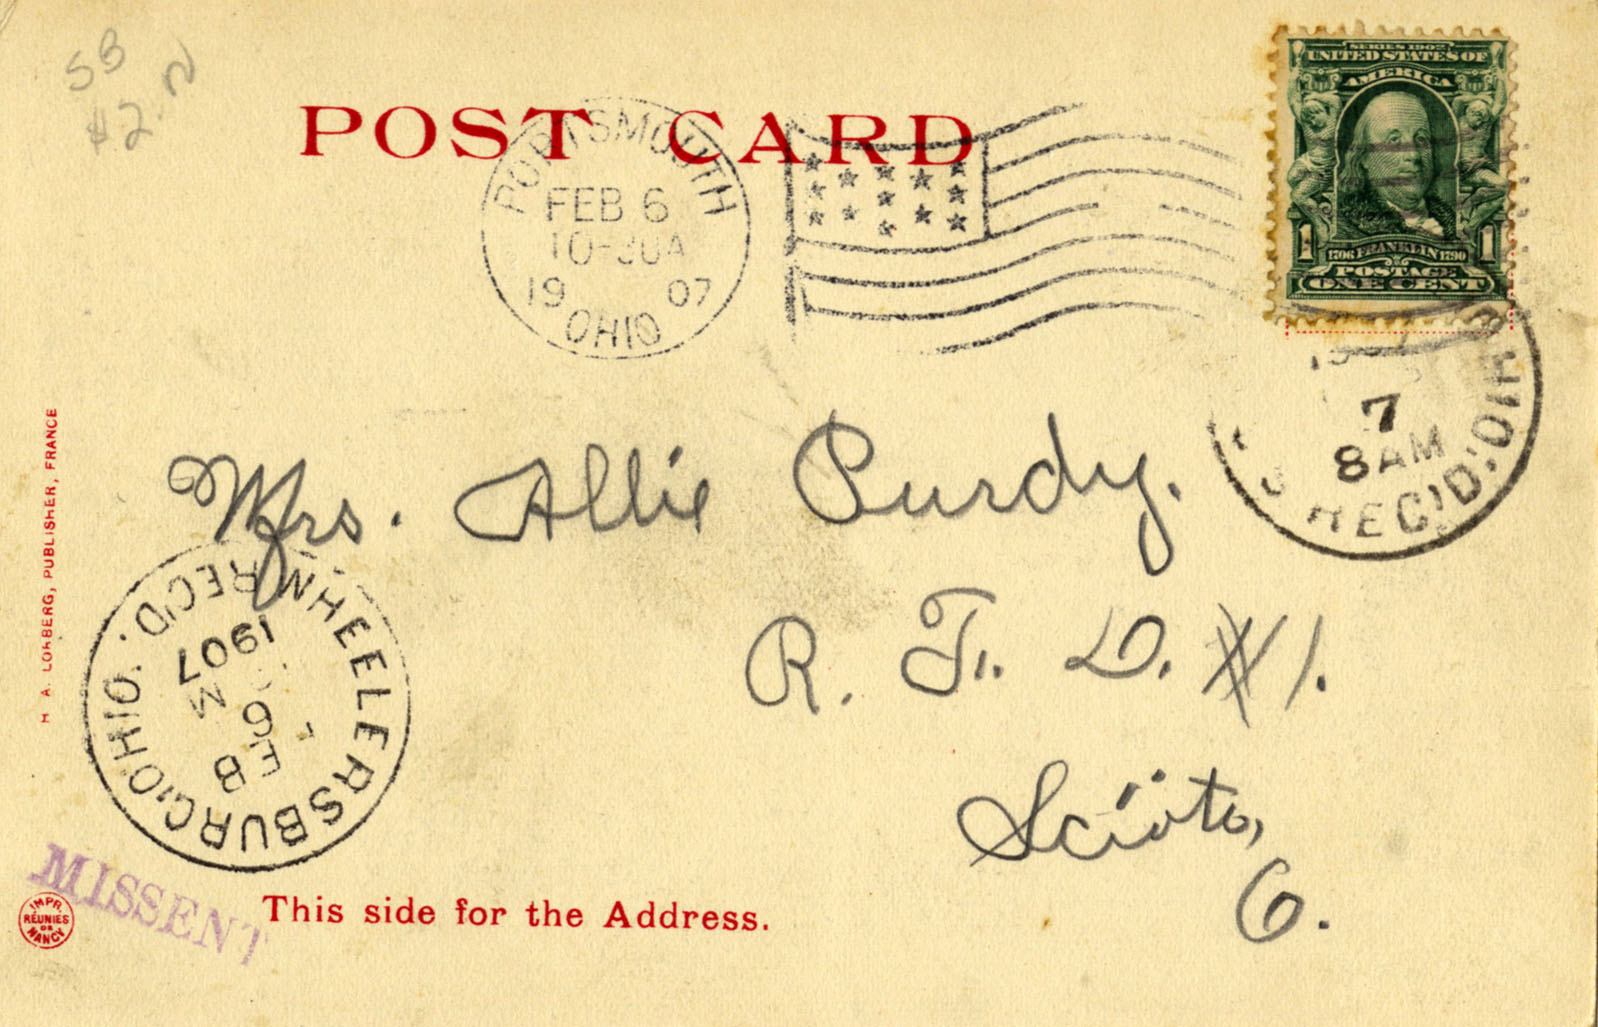 SB
#2
POST CARD
PORTSMOUTH
FEB 6
10-30A
1907
OHIO
SERIES 1902
UNITED STATES OF
AMERICA
1 1706 FRANKLIN 1790 1
POSTAGE
ONE CENT
7
8 AM
REC'D.
Mrs. Allie Purdy.
R. F. D. #1.
Scioto,
O.
WHEELERSBURG, OHIO. REC'D.
FEB
6
M
1907
MISSENT
This side for the Address.
H. A. LORBERG, PUBLISHER, FRANCE
IMPR.
RÉUNIES
DE
NANCY